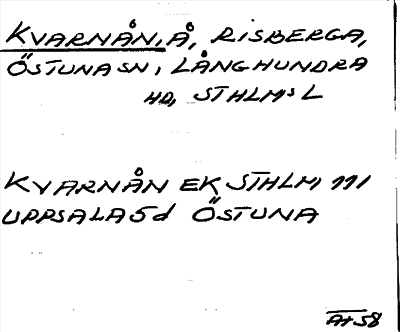 KVARNÅN, Å, RISBERGA,
ÖSTUNA SN, LÅNGHUNDRA
HD, STHLMS L
KVARNÅN EK STHLM 111
UPPSALA 5d ÖSTUNA
AH 58